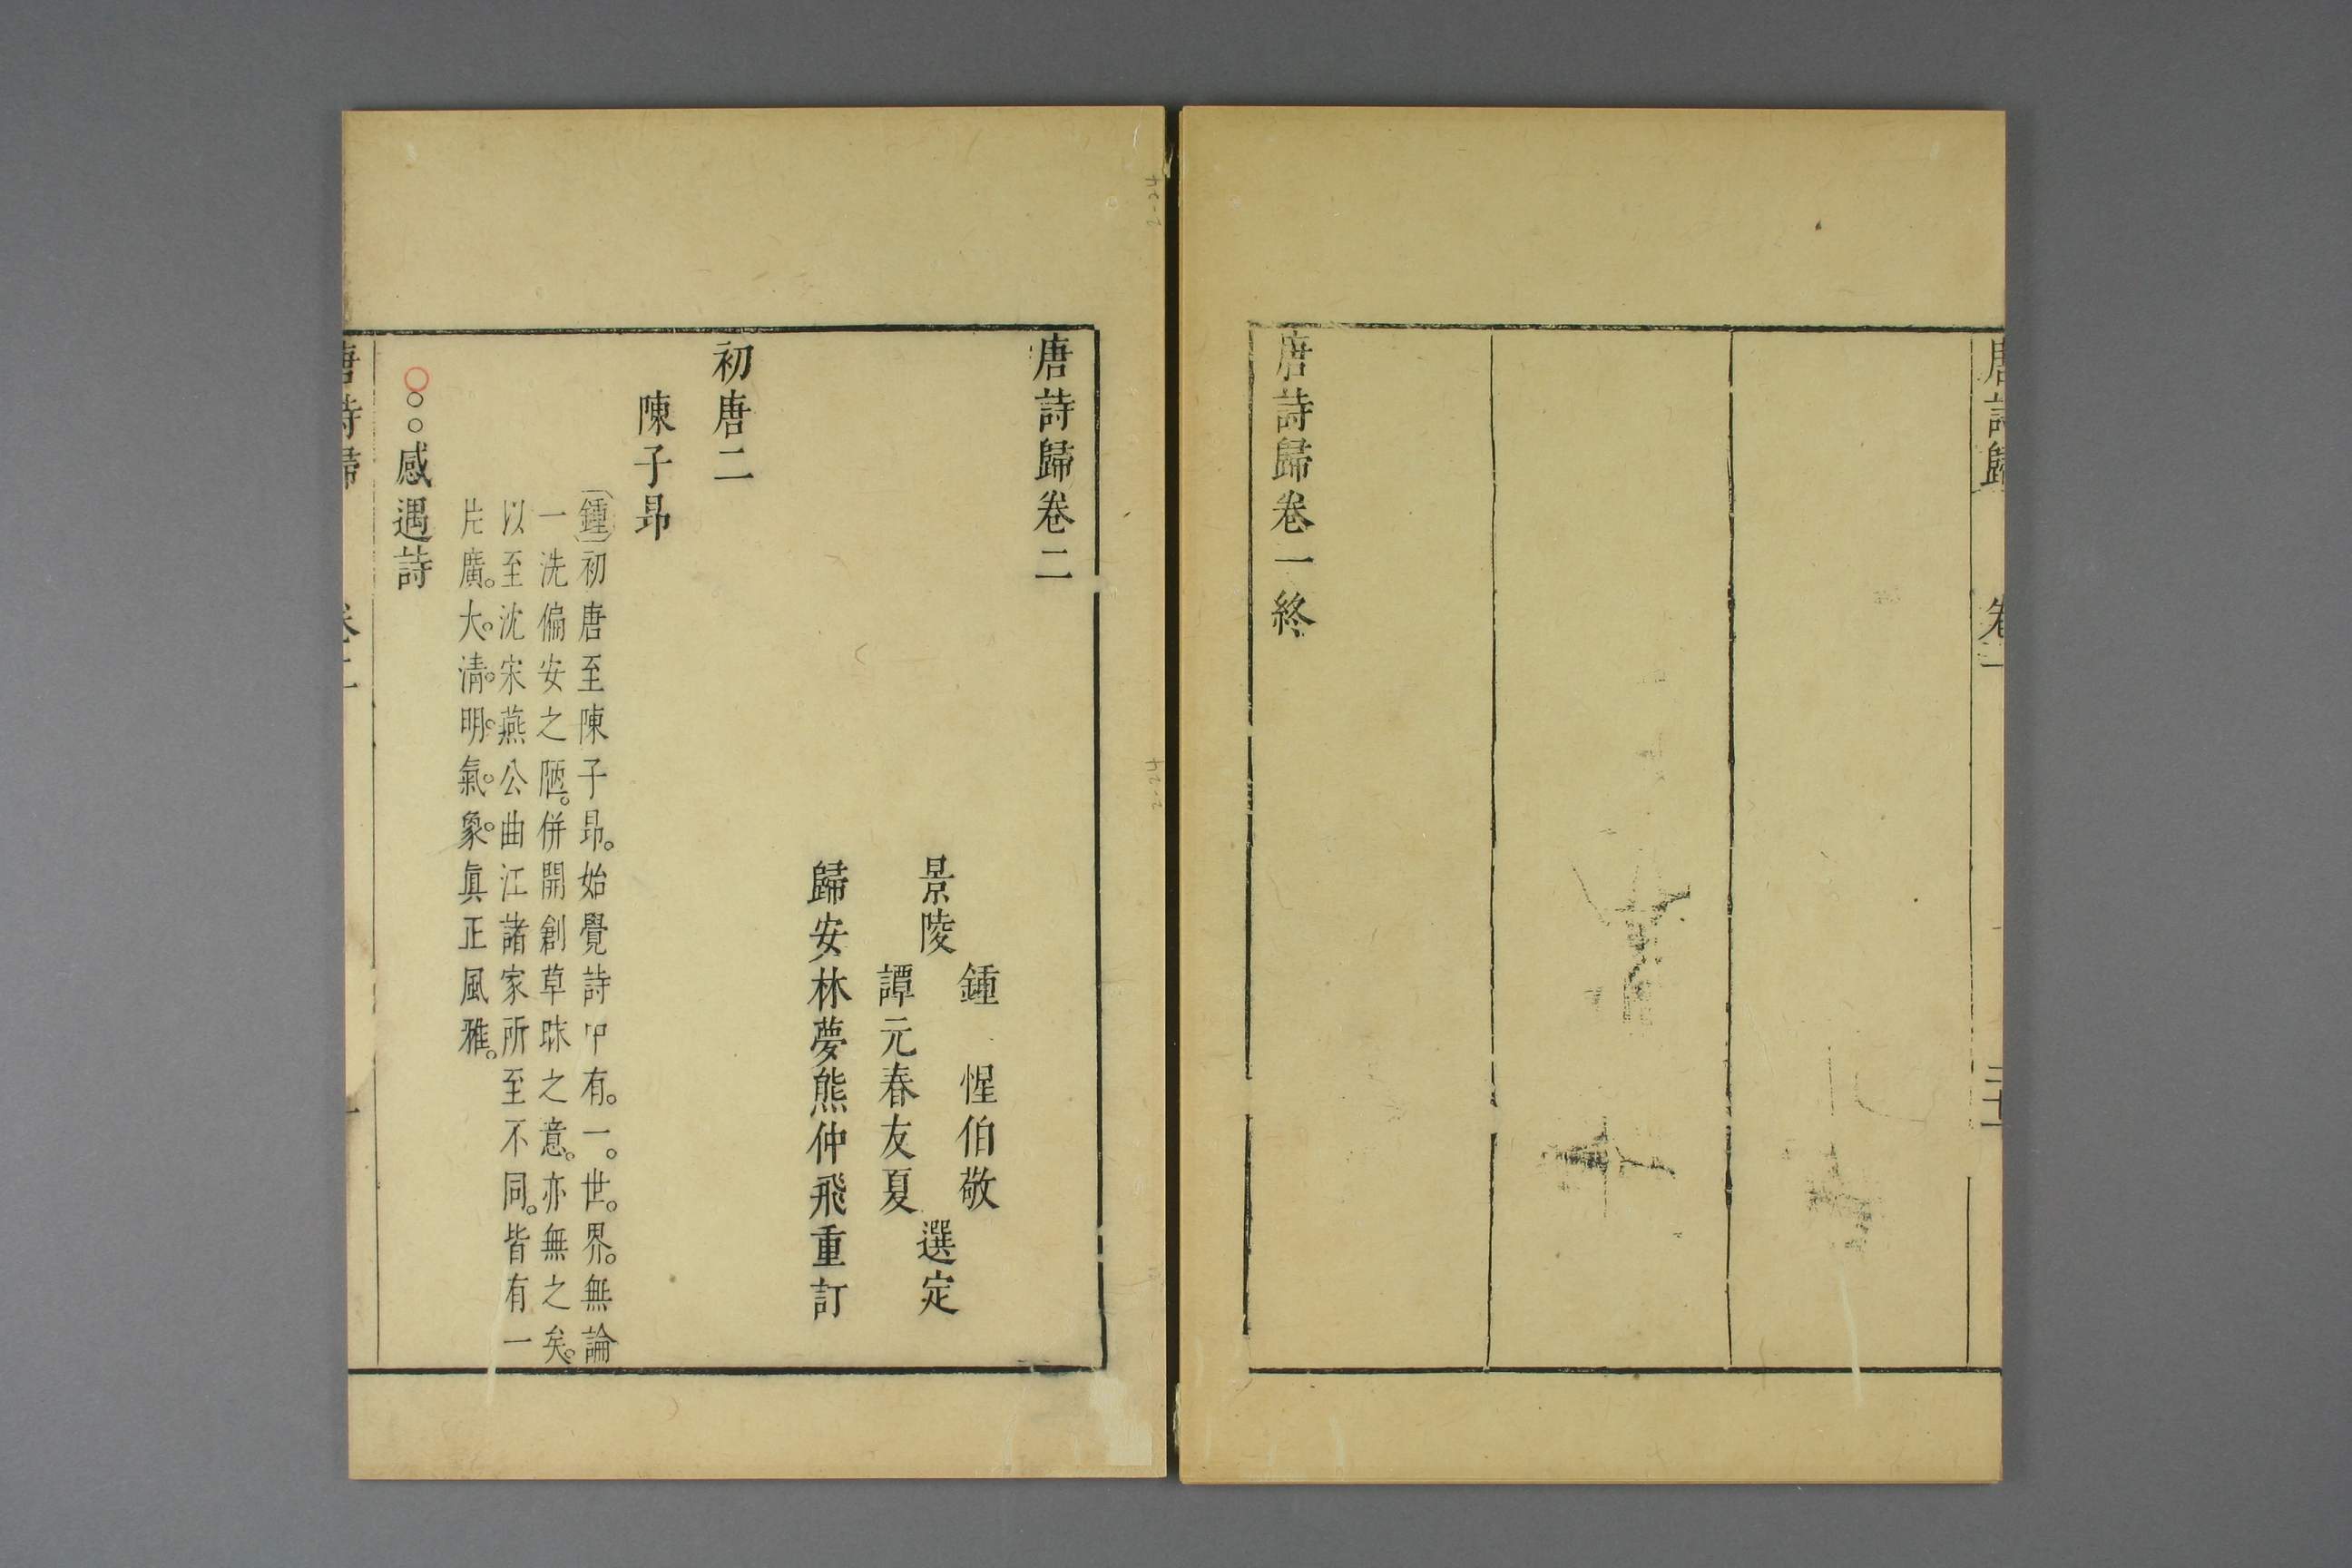 唐詩歸 卷一
唐詩歸卷一終
唐詩歸卷二
景陵
鍾 惺伯敬
譚元春友夏
選定
歸安林夢熊仲飛重訂
初唐二
陳子昻
鍾初唐至陳子昻。始覺詩中有。一。世。界。無論
一洗偏安之陋。併開創草昧之意。亦無之矣。
以至沈宋燕公曲江諸家所至不同。皆有一
片廣。大。清。明。氣。象。眞正風雅。
○○○感遇詩
唐詩歸 卷二 一